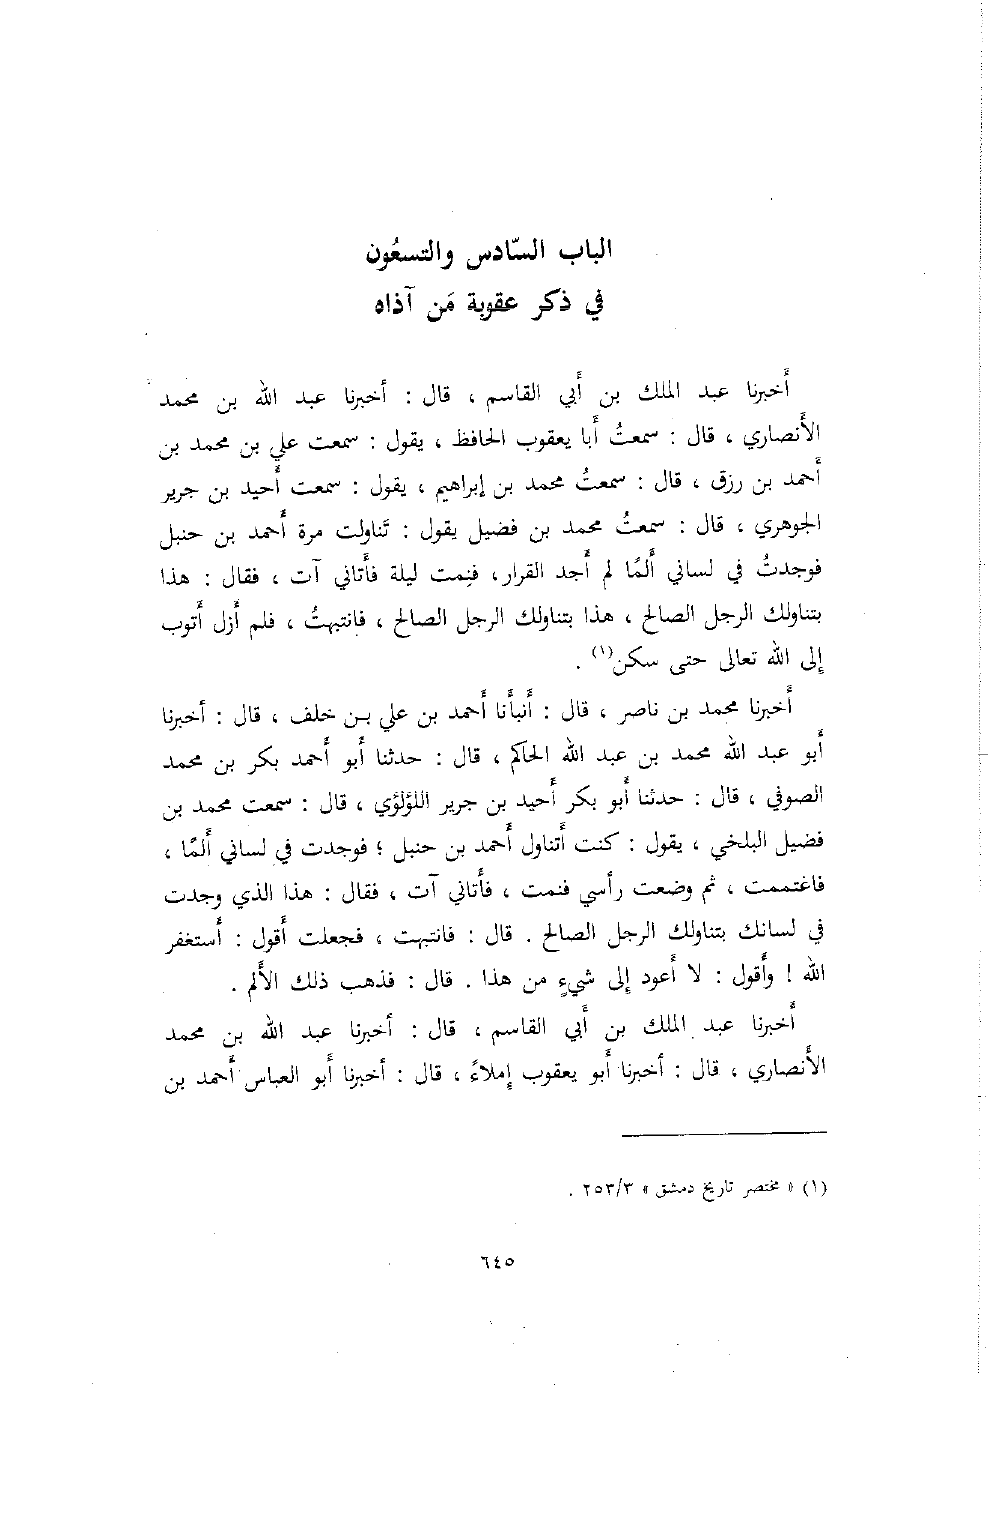 الباب السّادس والتسعُون
في ذكر عقوبة مَن آذاه
أَخبرنا عبد الملك بن أَبي القاسم ، قال : أَخبرنا عبد الله بن محمد
الأَنصاري ، قال : سمعتُ أَبا يعقوب الحافظ ، يقول : سمعت علي بن محمد بن
أَحمد بن رزق ، قال : سمعتُ محمد بن إبراهيم ، يقول : سمعت أَحيد بن جرير
الجوهري ، قال : سمعتُ محمد بن فضيل يقول : تَناولت مرة أَحمد بن حنبل
فوجدتُ في لساني أَلمًا لم أَجد القرار، فنِمت ليلة فأَتاني آت ، فقال : هذا
بتناولك الرجل الصالح ، هذا بتناولك الرجل الصالح ، فانتبهتُ ، فلم أَزل أَتوب
إلى الله تعالى حتى سكن(١) .
أَخبرنا محمد بن ناصر ، قال : أَنبأَنا أَحمد بن علي بن خلف ، قال : أَخبرنا
أَبو عبد الله محمد بن عبد الله الحاكم ، قال : حدثنا أَبو أَحمد بكر بن محمد
الصوفي ، قال : حدثنا أَبو بكر أَحيد بن جرير اللؤلؤي ، قال : سمعت محمد بن
فضيل البلخي ، يقول : كنت أَتناول أَحمد بن حنبل ؛ فوجدت في لساني أَلمًا ،
فاغتممت ، ثم وضعت رأسي فنمت ، فأَتاني آت ، فقال : هذا الذي وجدت
في لسانك بتناولك الرجل الصالح . قال : فانتبهت ، فجعلت أَقول : أَستغفر
الله ! وأَقول : لا أَعود إلى شيءٍ من هذا . قال : فذهب ذلك الأَلم .
أَخبرنا عبد الملك بن أَبي القاسم ، قال : أَخبرنا عبد الله بن محمد
الأَنصاري ، قال : أَخبرنا أَبو يعقوب إملاءً ، قال : أَخبرنا أَبو العباس أَحمد بن
(١) « مختصر تاريخ دمشق » ٢٥٣/٣ .
٦٤٥